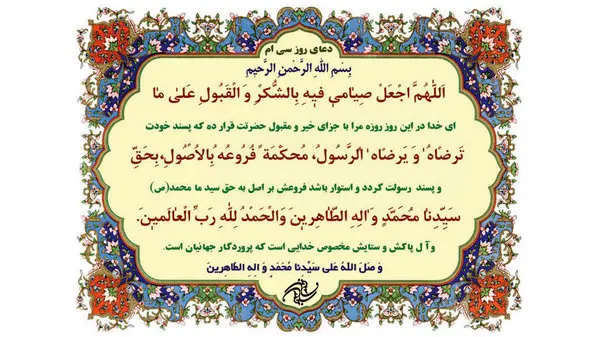 دعای روز سی ام
بِسْمِ اللهِ الرَّحْمنِ الرَّحیمِ
اَللّٰهُمَّ اجْعَلْ صِیٰامي فیٖهِ بِالشُّکْرِ وَ الْقَبُولِ عَلیٰ مٰا
ای خدا در این روز روزه مرا با جزای خیر و مقبول حضرتت قرار ده که پسند خودت
تَرضٰاهُ وَ یَرضٰاه الرَّسُولُ، مُحکَمَةً فُروعُهُ بِالاُصُولِ، بِحَقِّ
و پسند رسولت گردد و استوار باشد فروعش بر اصل به حق سید ما محمد(ص)
سَیِّدِنٰا مُحَمَّدٍ وَ الِهِ الطّٰاهِرینَ وَالْحَمْدُ لِلّٰهِ رَبِّ الْعٰالَمینَ.
و آل پاکش و ستایش مخصوص خدایی است که پروردگار جهانیان است.
وَ صَلَ اللهُ عَلی سَیِّدِنٰا مُحَمَدٍ وَ الِهِ الطّاهِرین